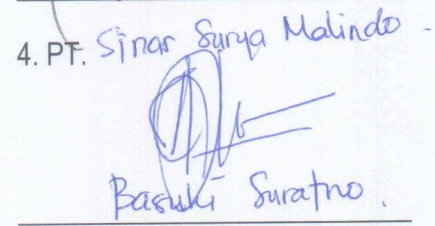 4. PT. Sinar Surya Malindo.
Basuki Suratno.